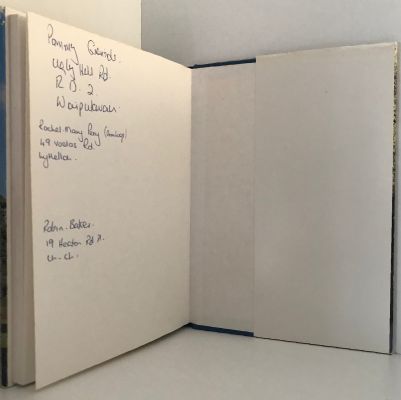 Ugly Hill Rd.
R D. 2
Waipukurau.
Rachel-Mary Perry
49 Voelas Rd.
Lyttelton.
Robin. Baker.
19 Heaton Rd
Ch. Ch.